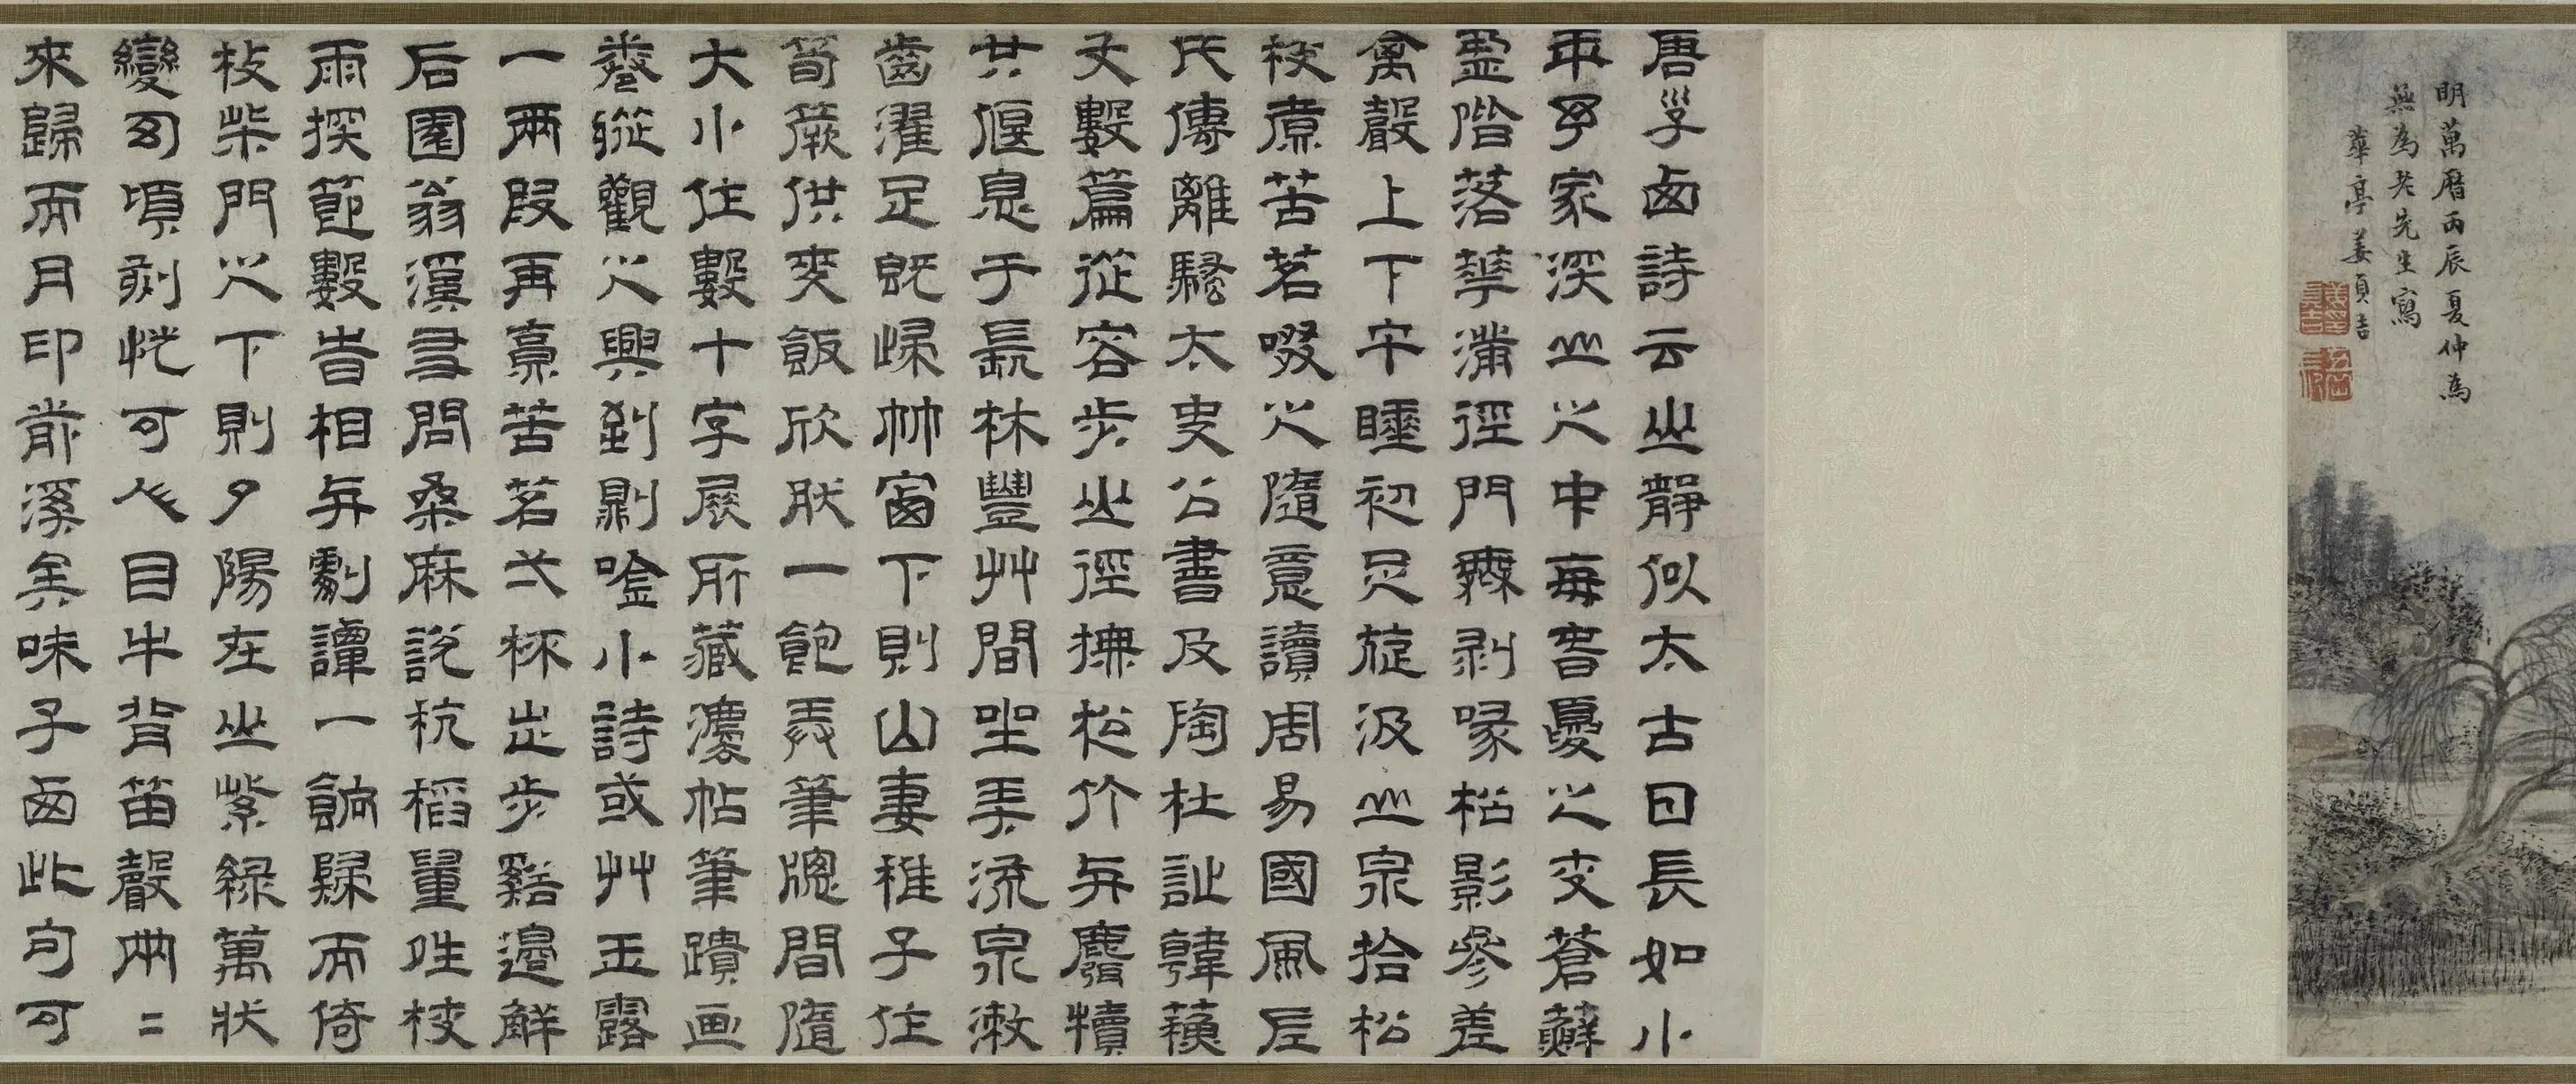 明萬曆丙辰夏仲為
無為老先生寫
華亭姜貞吉
唐子西詩云山靜似太古日長如小
年予家深山之中每春夏之交蒼蘚
盈階落華滿徑門無剝啄松影參差
禽聲上下午睡初足旋汲山泉拾松
枝煮苦茗啜之隨意讀周易國風左
氏傳離騷太史公書及陶杜詩韓蘇
文數篇從容步山徑撫松竹與麛犢
共偃息于長林豐艸間坐弄流泉漱
齒濯足既歸竹窗下則山妻稚子作
筍蕨供麥飯欣肰一飽弄筆窗間隨
大小作數十字展所藏灋帖筆蹟画
卷縱觀之興到則唫小詩或艸玉露
一兩段再烹苦茗弌杯出步谿邊解
后園翁溪叟問桑麻說秔稻量晴校
雨探節數時相與劇譚一餉歸而倚
杖柴門之下則夕陽在山紫綠萬狀
變幻頃刻恍可人目牛背笛聲兩二
來歸而月印前溪矣味子西此句可